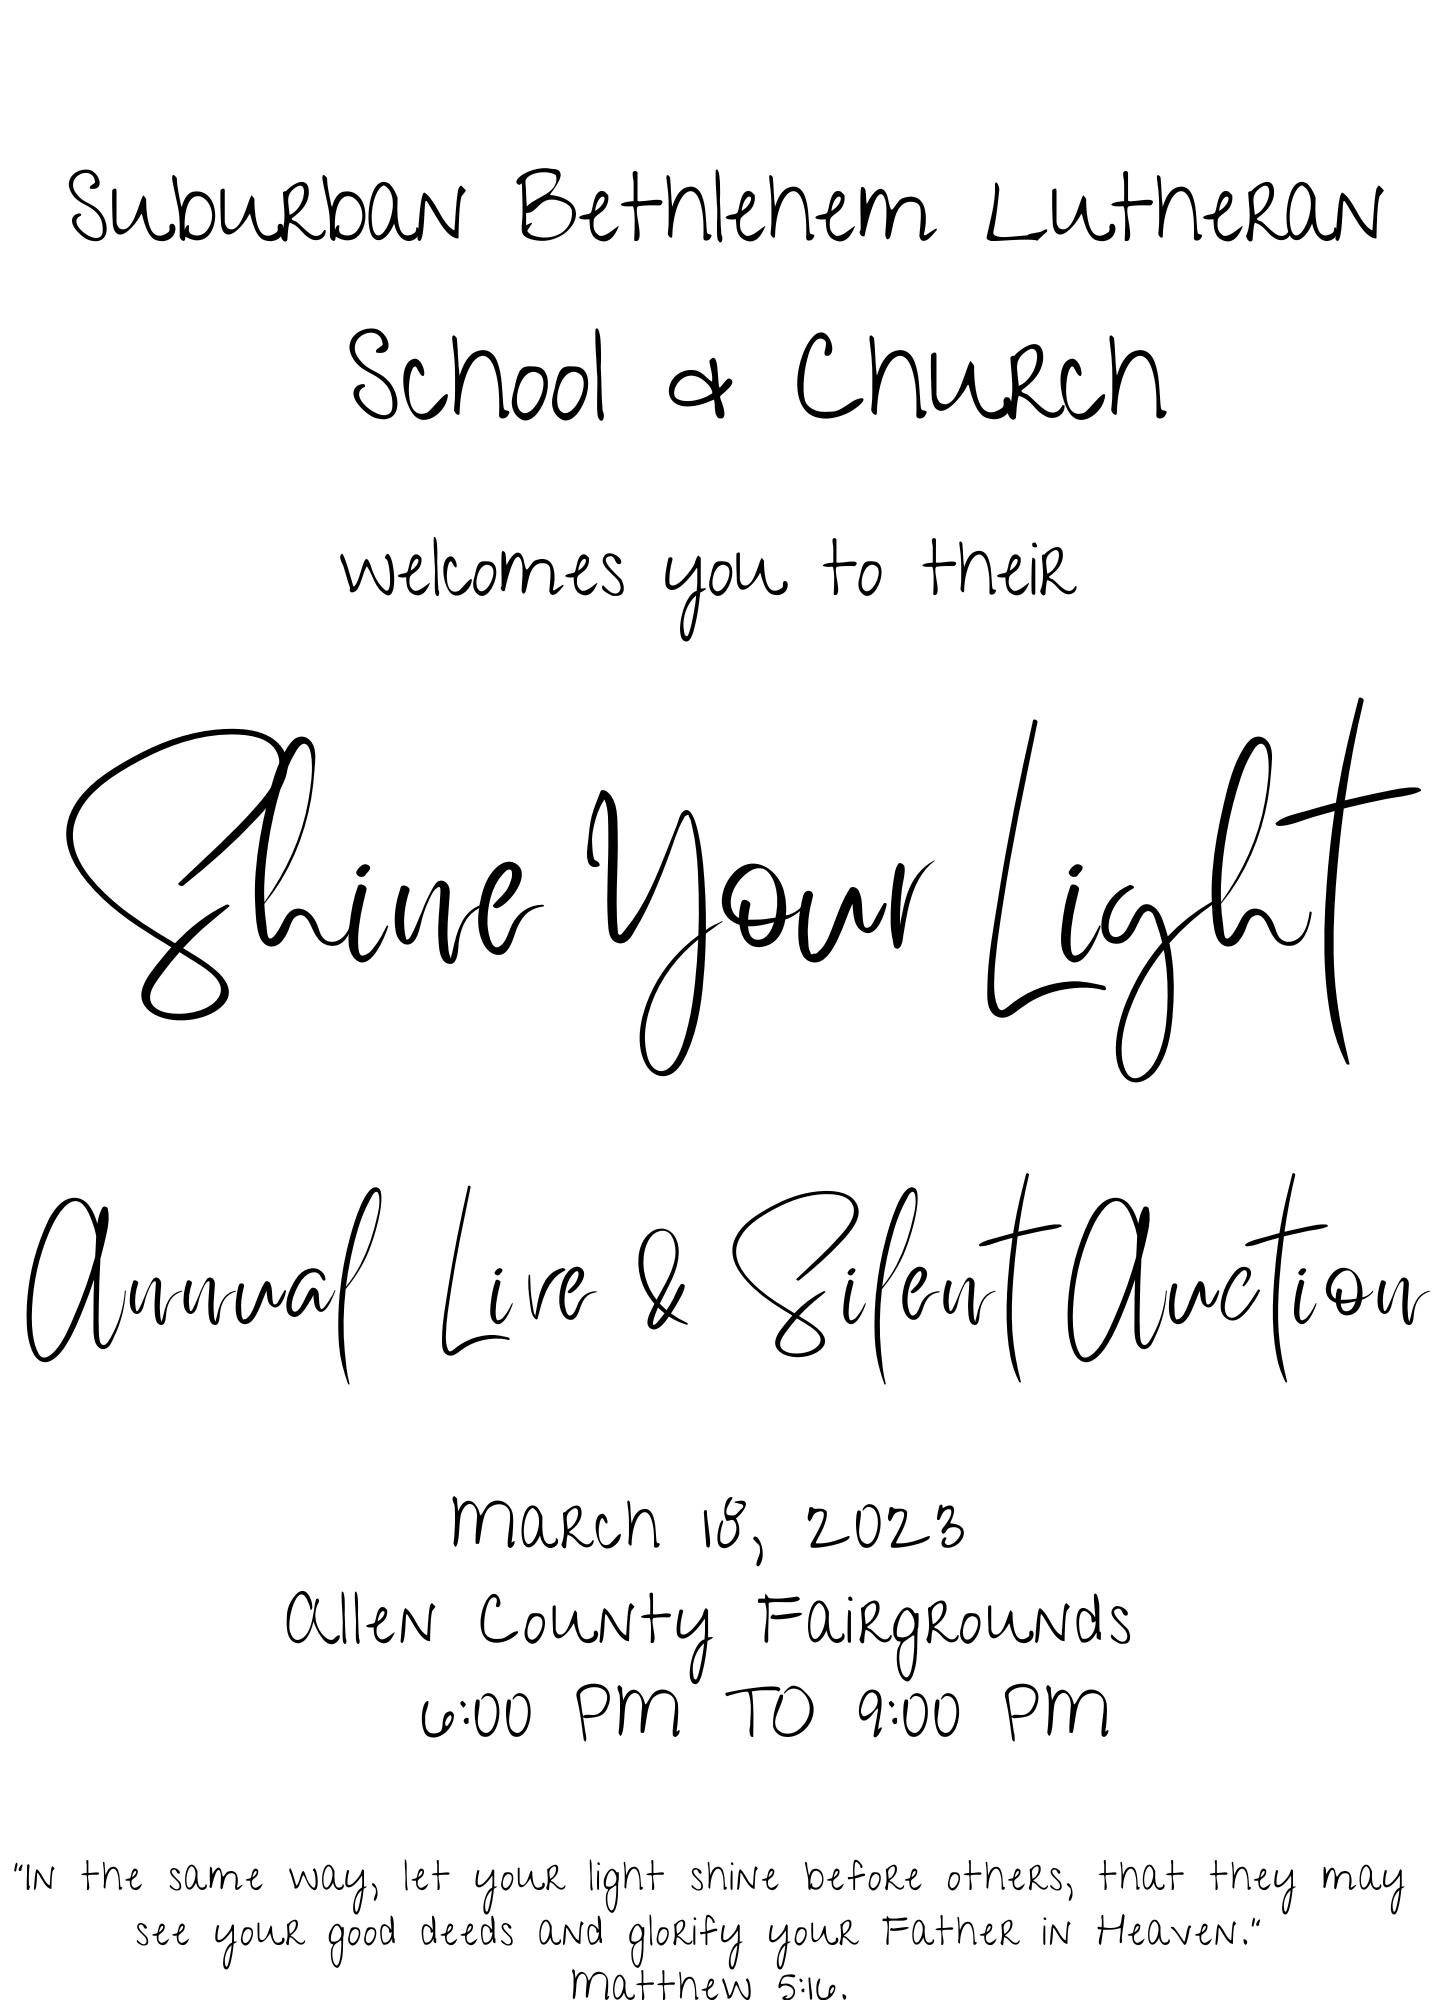 Suburban Bethlehem Lutheran
School & Church
welcomes you to their
Shine Your Light
Annual Live & Silent Auction
March 18, 2023
Allen County Fairgrounds
6:00 PM TO 9:00 PM
"In the same way, let your light shine before others, that they may
see your good deeds and glorify your Father in Heaven."
Matthew 5:16.